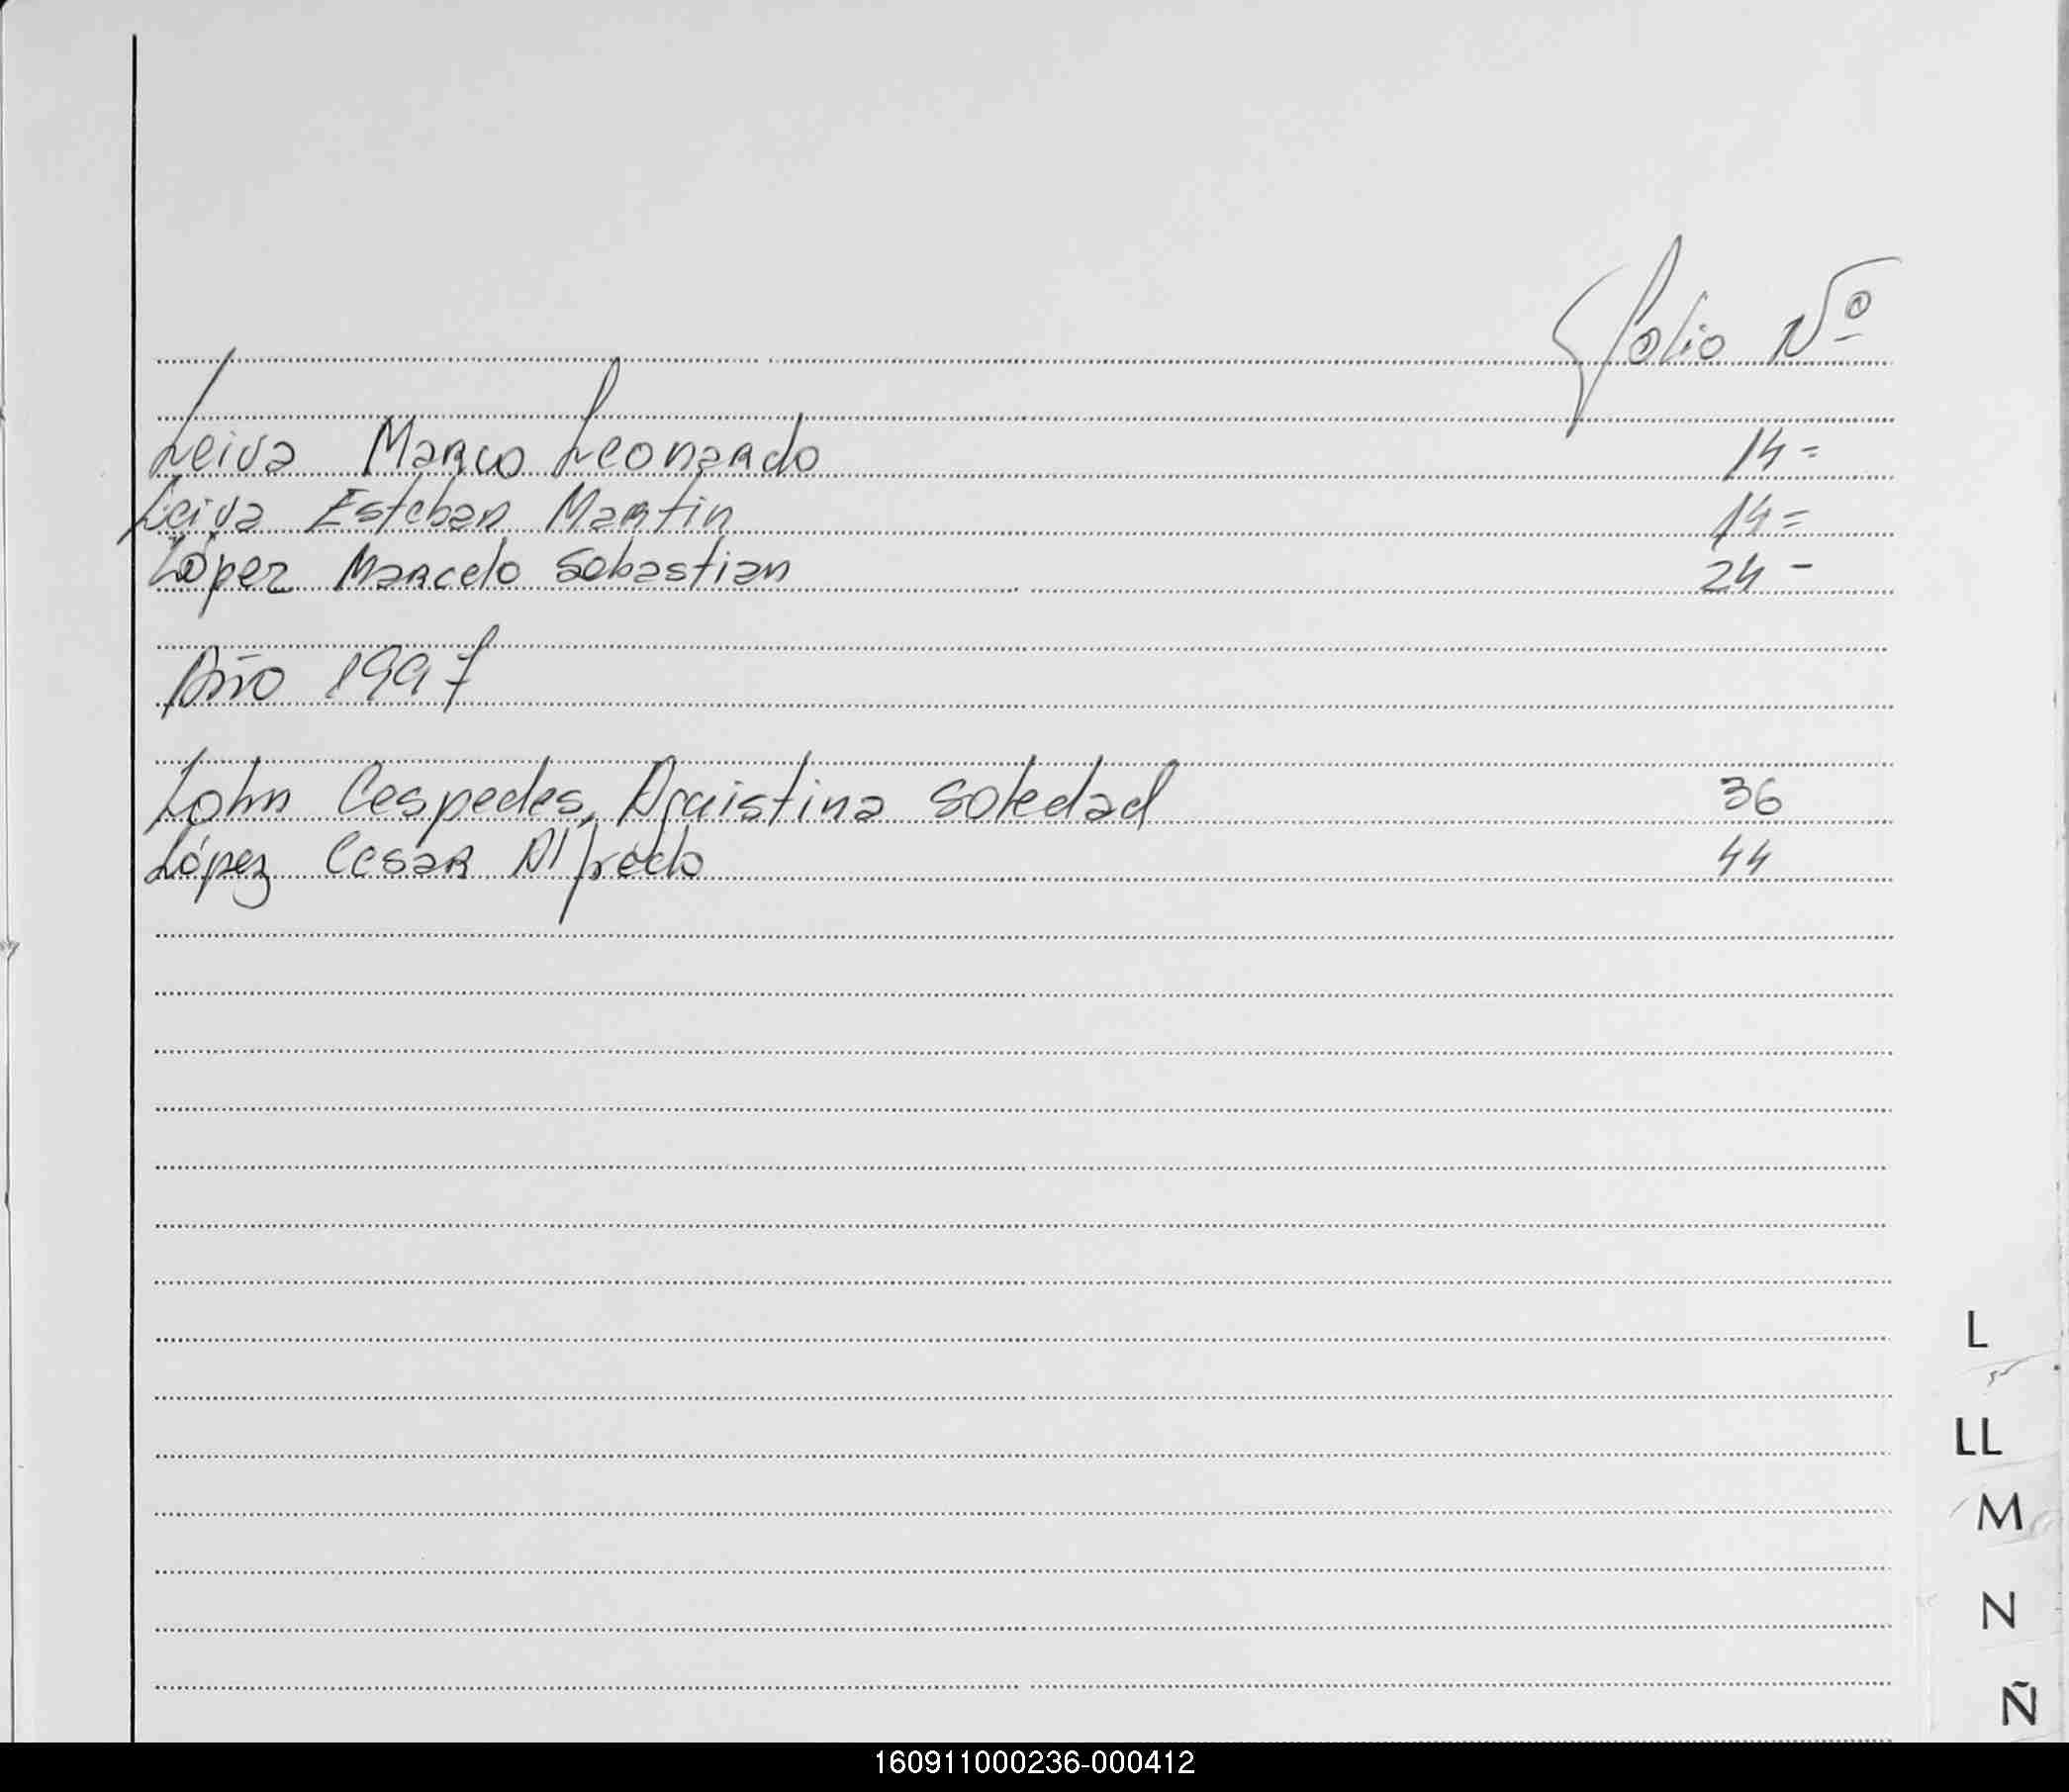 Folio Nº
Leiva Marco Leonardo 14=
Leiva Esteban Martin 14=
López Marcelo Sebastian 24-
Año 1997
Lohn Cespedes, Soledad 36
López Cesar Alfredo 44
L
LL
M
N
Ñ
160911000236-000412